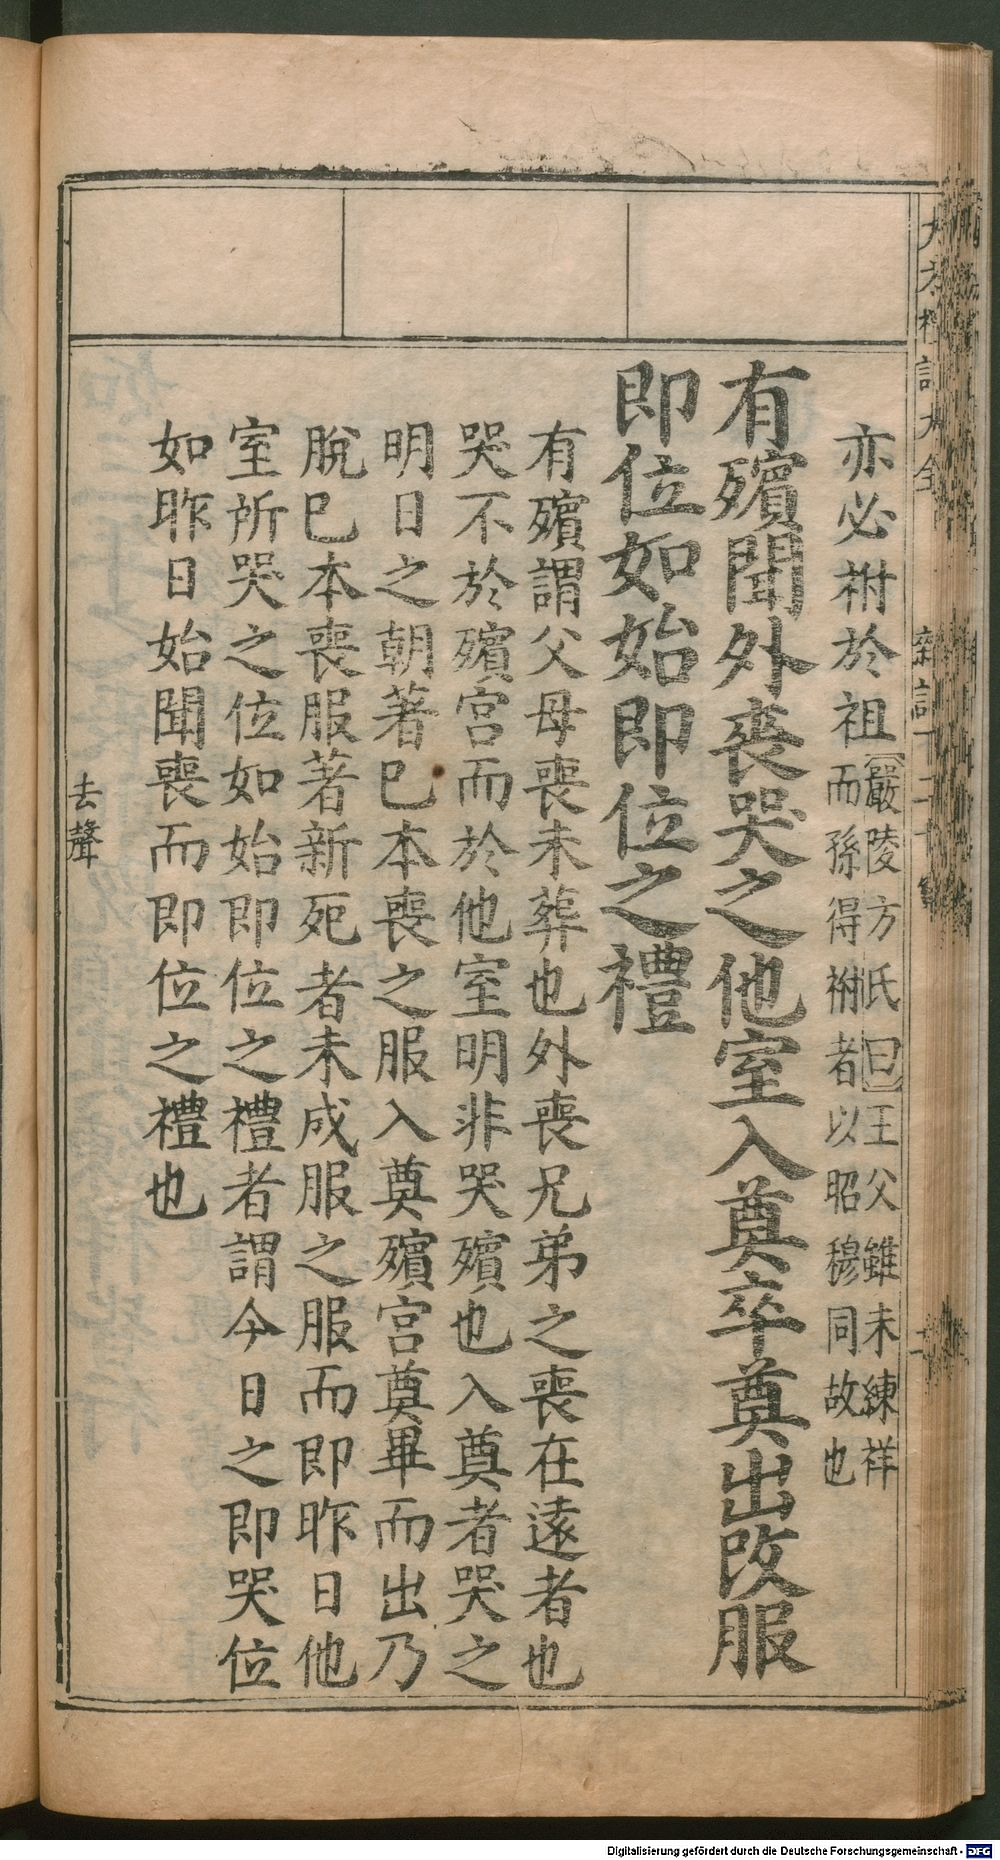 亦必祔於祖【嚴陵方氏曰】王父雖未練祥
而孫得祔者以昭穆同故也
有殯聞外喪哭之他室入奠卒奠出改服
即位如始即位之禮
有殯謂父母喪未葬也外喪兄弟之喪在遠者也
哭不於殯宮而於他室明非哭殯也入奠者哭之
明日之朝著已本喪之服入奠殯宮奠畢而出乃
脫已本喪服著新死者未成服之服而即昨日他
室所哭之位如始即位之禮者謂今日之即哭位
如昨日始聞喪而即位之禮也
去聲
Digitalisierung gefördert durch die Deutsche Forschungsgemeinschaft - DFG